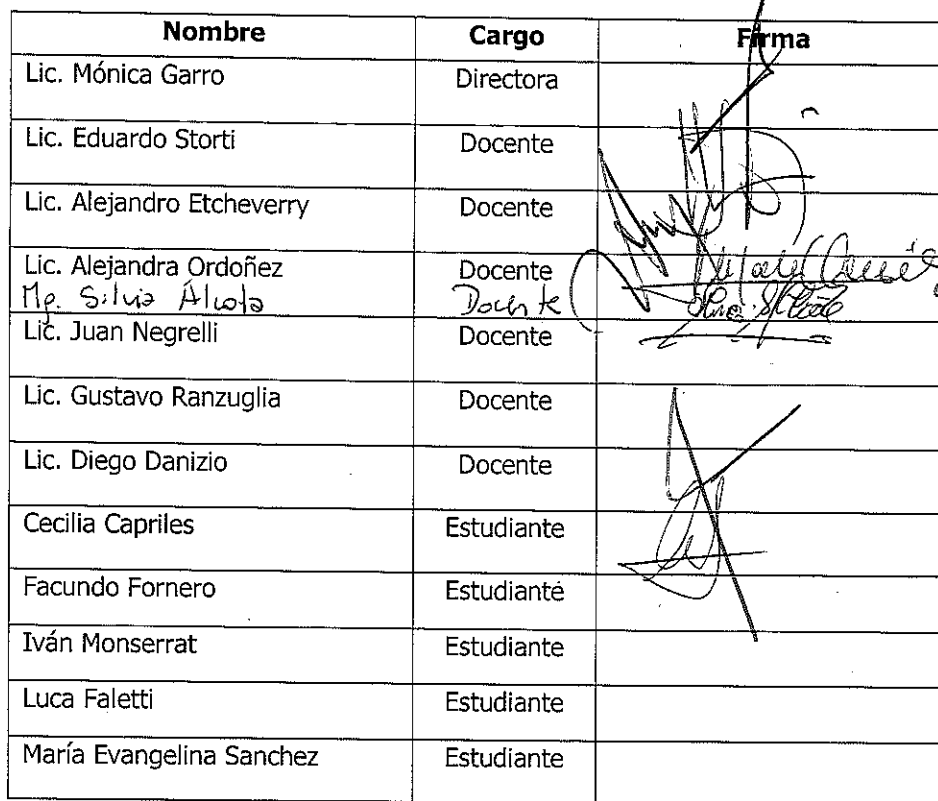 Nombre Cargo Firma
Lic. Mónica Garro Directora
Lic. Eduardo Storti Docente
Lic. Alejandro Etcheverry Docente
Lic. Alejandra Ordoñez Docente
Mg. Silvia Álcota Docente
Lic. Juan Negrelli Docente
Lic. Gustavo Ranzuglia Docente
Lic. Diego Danizio Docente
Cecilia Capriles Estudiante
Facundo Fornero Estudiante
Iván Monserrat Estudiante
Luca Faletti Estudiante
María Evangelina Sanchez Estudiante